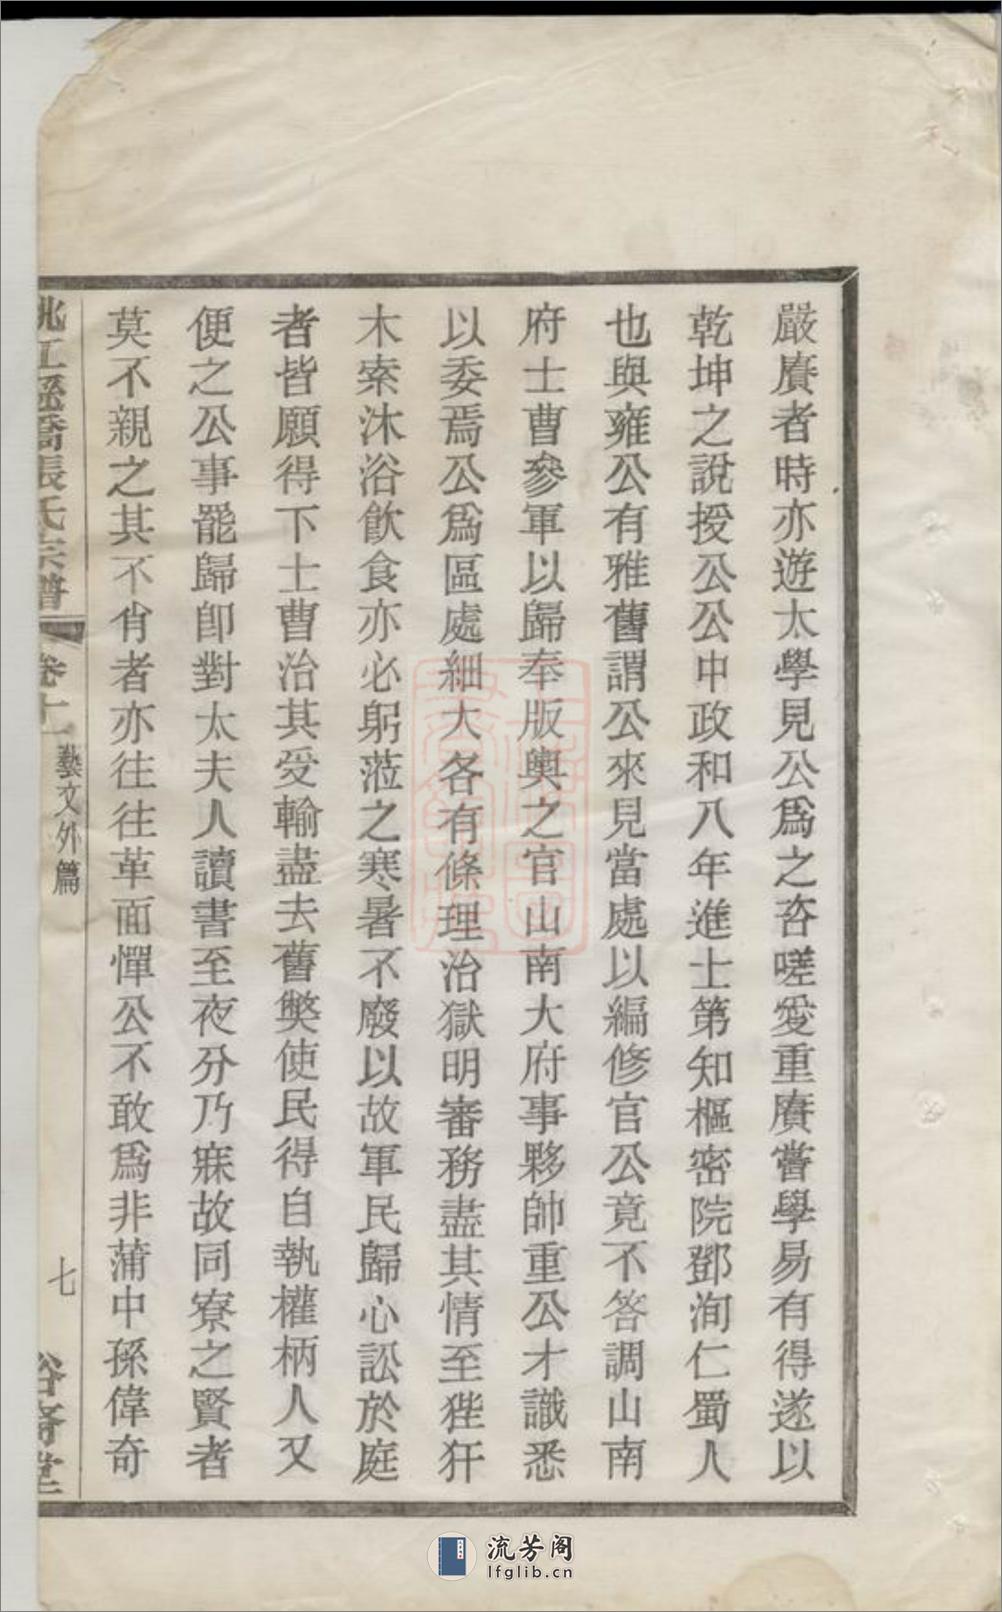 嚴賡者時亦遊太學見公爲之咨嗟愛重賡嘗學易有得遂以
乾坤之說授公公中政和八年進士第知樞密院鄧洵仁蜀人
也與雍公有雅舊謂公來見當處以編修官公竟不答調山南
府士曹參軍以歸奉版輿之官山南大府事夥帥重公才識悉
以委焉公爲區處細大各有條理治獄明審務盡其情至狴犴
木索沐浴飲食亦必躬蒞之寒暑不廢以故軍民歸心訟於庭
者皆願得下士曹治其受輸盡去舊獘使民得自執權柄人又
便之公事罷歸卽對太夫人讀書至夜分乃寐故同寮之賢者
莫不親之其不肖者亦往往革面憚公不敢爲非蒲中孫偉奇
姚江
張氏宗譜
卷十一
藝文外篇
七
裕齋堂
流芳阁
lfglib.cn